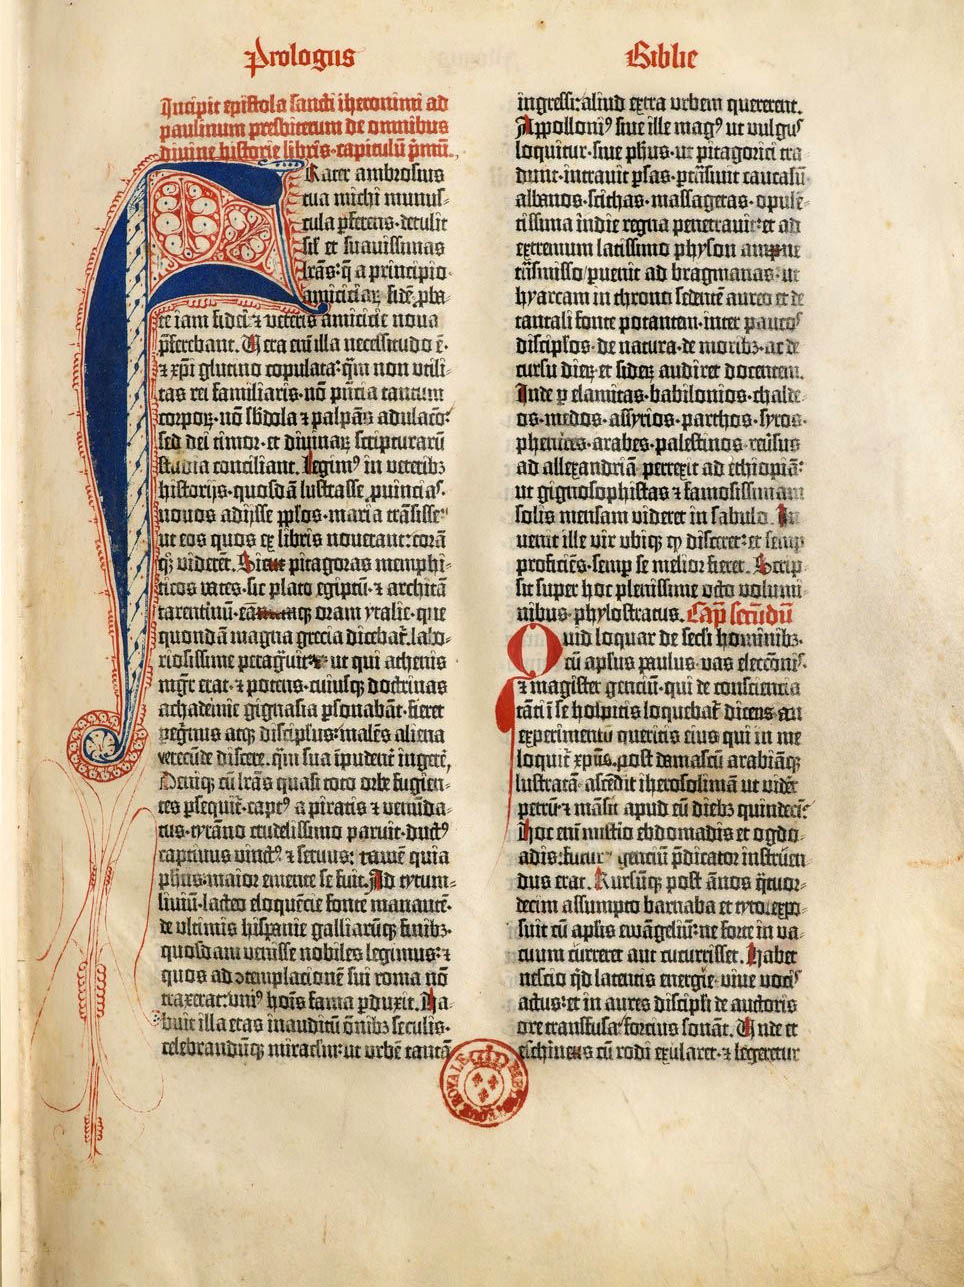 Prologus
Incipit epistola sancti iheronimi ad
paulinum presbiterum de omnibus
divine historie libris·capitulū p̄mū.
Frater ambrosius
tua michi munus-
cula ꝑferens·detulit
sil' et suauissimas
lr̄as·q̄ a principio
amiciciaꝝ fidē ꝓba-
te iam fidei ⁊ veteris amicicie noua
p̄ferebant. Vera em̄ illa necessitudo ē·
⁊ xp̄i glutino copulata·q̄m non utili-
tas rei familiaris·nō p̄ntia tantum
corpoꝝ·nō sb̄dola ⁊ palpās adulacō·
sed dei timor·et diuinaꝝ scripturarū
studia conciliant. Legimꝰ in veteribꝫ
historijs·quosdā lustrasse ꝓuincias·
nouos adijsse ppl̄os·maria trāsisse·
ut eos quos ex libris nouerant:corā
qꝫ viderēt. Sicut pitagoras memphi-
ticos vates·sic plato egiptū·⁊ architā
tarentinū·eamqꝫ oram ytalie·que
quondā magna grecia dicebat̄·labo-
riosissime peragͥuit·ut qui athenis
mgr̄ erat·⁊ potens·cuiusqꝫ doctrinas
achademie gignasia ꝑsonabāt·fieret
peg̊rinus atqꝫ discipl̄us:malēs aliena
verecūde discere·qͣm sua īpudent̄ ingere·
Deniqꝫ cū lr̄as quasi toto orbe fugien-
tes ꝑsequit̄·captꝰ a piratis ⁊ venūda-
tus·tyrāno crudelissimo paruit·ductꝰ
captiuus vinctꝰ ⁊ seruus: tamē quia
ph̄us·maior emente se fuit. Ad tytum-
liuiū·lacteo eloquēcie fonte manantē·
de vltimis hispanie galliarūqꝫ finibꝫ·
quosdam venisse nobiles legimus:⁊
quos ad ꝯtemplacionē sui roma nō
traxerat:uniꝰ hoīs fama ꝑduxit. Ha-
buit illa etas inauditū ōnibꝫ seculis·
celebrandūqꝫ miracl̄m:ut vrbē tantā
Biblie
ingressi:aliud extra vrbem quererent.
Appolloniꝰ siue ille magꝰ ut vulgus
loquitur·siue ph̄us·ut pitagorici tra-
dunt·intrauit ꝑsas·ꝑtrāsiuit caucasū·
albanos·scithas·massagetas·opulē-
tissima indie regna penetrauit:et ad
extremum latissimo physon amne
trāsmisso ꝑuenit ad bragmanas·ut
hyarcam in throno sedentē aureo et de
tantali fonte potantem·inter paucos
discipl̄os·de natura·de moribꝫ·ac de
cursu dieꝝ et sideꝝ audiret docentem.
Inde ꝑ elamitas·babilonios·chalde-
os·medos·assyrios·parthos·syros·
phenices·arabes·palestinos·reūsus
ad allexandriā·perrexit ad ethiopiā:
ut gignosophistas ⁊ famosissimam
solis mensam videret in sabulo. In-
uenit ille vir vbiqꝫ qͦ disceret:et semꝑ
proficiēs·semꝑ se melior fieret. Scrip-
sit super hoc plenissime octo volumi-
nibus·phylostratus. Cap̄ secūdū
Quid loquar de secl̄i hominibꝫ·
cū apl̄us paulus·vas eleccōnis·
⁊ magister gentiū·qui de consciencia
tāti ī se hospitis loquebat̄ dicens·an
experimentū queritis eius qui in me
loquit̄ xpūs·post damascū arabiāqꝫ
lustratā·ascēdit iherosolimā ut vidēt
petrū·⁊ māsit apud eū diebꝫ quindecī:
Hoc em̄ misterio ebdomadis et ogdo-
adis:futurꝰ gentiū p̄dicator instruen-
dus erat. Rursūqꝫ post ānos q̄tuor-
decim assumpto barnaba et tyto·expo-
suit cū apl̄is ewāgeliū:ne forte in va-
cuum curreret aut cucurrisset. Habet
nescio qͥd latentis energie·viue vocis
actus:et in aures discipl̄i de auctoris
ore transfusa·forcius sonāt. Unde et
eschineus cū rodi exularet·⁊ legeretur